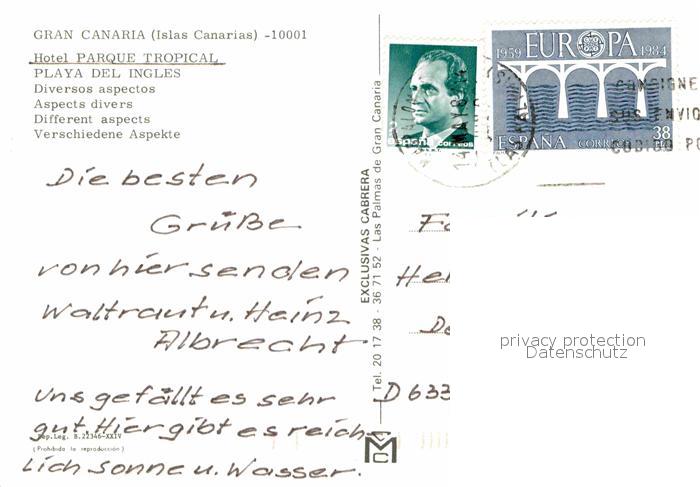 GRAN CANARIA (Islas Canarias) -10001
Hotel PARQUE TROPICAL
PLAYA DEL INGLES
Diversos aspectos
Aspects divers
Different aspects
Verschiedene Aspekte
Die besten
Grüße
von hier senden
Waltraut u. Heinz
Albrecht
Uns gefällt es sehr
gut. Hier gibt es reich-
lich Sonne u. Wasser.
Dep. Leg. B. 22346-XXIV
(Prohibida la reproducción)
EXCLUSIVAS CABRERA
Tel. 20 17 38 - 36 71 52 - Las Palmas de Gran Canaria
MC
España correos
1959 EUROPA 1984
ESPAÑA CORREOS 38
CONSIGNE
SUS ENVIO
CODIGO PO
He
D 633
privacy protection
Datenschutz